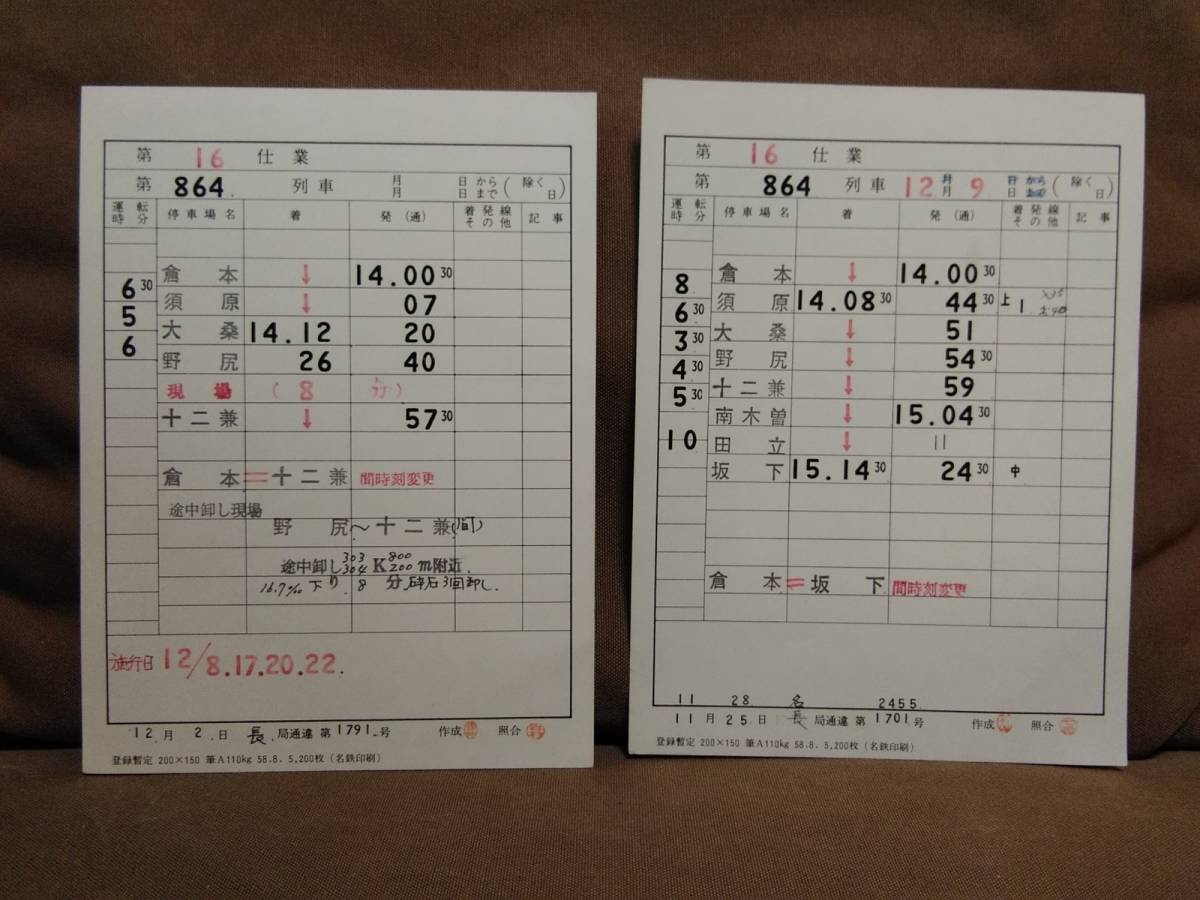 第 16 仕業
第 864 列車 月 月 日から 日まで ( 除く 日 )
運転時分 停車場名 着 発(通) 着発線その他 記事
倉本 ↓ 14.00 30
6 30
須原 ↓ 07
5
大桑 14.12 20
6
野尻 26 40
現場 ( 8 分 )
十二兼 ↓ 57 30
倉本=十二兼 間時刻変更
途中卸し現場
野尻~十二兼(間)
途中卸し 303 304 K 800 200 m附近
16.7‰下り 8分 砕石3回卸し.
施行日 12/8.17.20.22.
12月2日 長局通達第1791号 作成 照合
登録暫定 200×150 筆A110kg 58.8. 5,200枚 (名鉄印刷)
第 16 仕業
第 864 列車 12月 9日 から ( 除く 日 )
運転時分 停車場名 着 発(通) 着発線その他 記事
倉本 ↓ 14.00 30
8
須原 14.08 30 44 30 上1
6 30
大桑 ↓ 51
3 30
野尻 ↓ 54 30
4 30
十二兼 ↓ 59
5 30
南木曽 ↓ 15.04 30
10
田立 ↓ 11
坂下 15.14 30 24 30 中
倉本=坂下 間時刻変更
11 28 名 2455
11月25日 長局通達第1701号 作成 照合
登録暫定 200×150 筆A110kg 58.8. 5,200枚 (名鉄印刷)